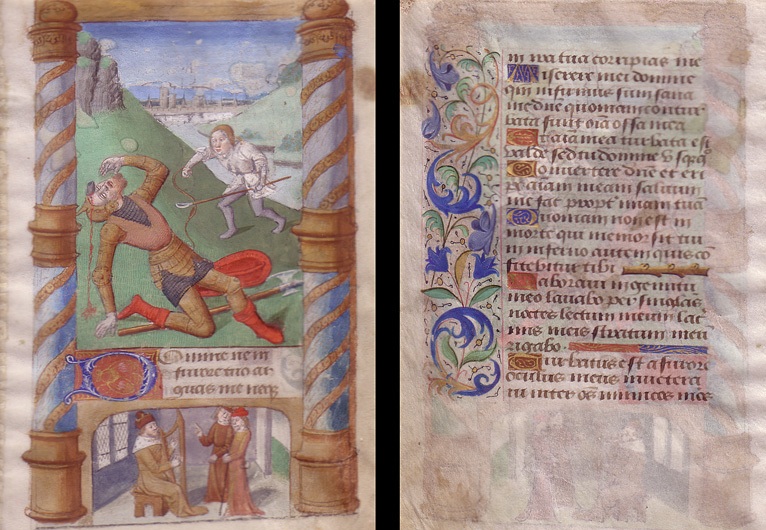 Domine ne in
furore tuo ar
guas me neqꝫ
in ira tua corripias me
Miserere mei domine
qm̄ infirmus sum sana
me dn̄e quoniam contur
bata sunt oīa ossa mea
Et aīa mea turbata est
valde sed tu domine usqꝫ
Convertere dn̄e et eri
pe aīam meam salvum
me fac propt mīam tuā
Quoniam non est in
morte qui memor sit tui
in inferno autem quis cō
fitebitur tibi
Laboravi in gemitu
meo lavabo per singulas
noctes lectum meum lac
mis meis stratum meū
rigabo
Turbatus est a furore
oculus meus invetera
vi inter os inimicos meos